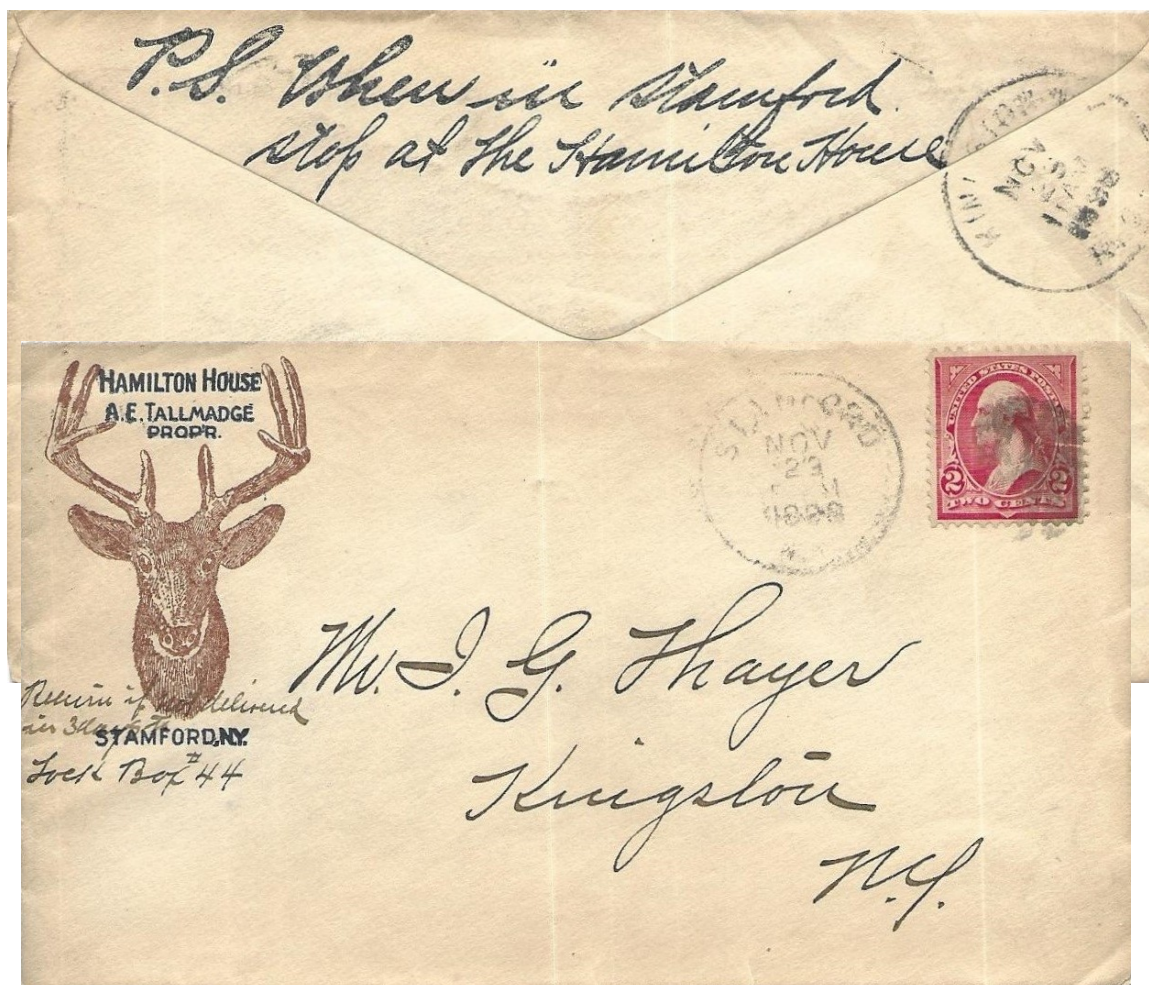 P.S. When in Stamford
stop at The Hamilton House
NOV
HAMILTON HOUSE
A.E. TALLMADGE
PROP'R.
STAMFORD
NOV
23
UNITED STATES POSTAGE
2 2
TWO CENTS
Mr. I. G. Thayer
Kingston
N.Y.
Return if not delivered
in 3 days to
STAMFORD, N.Y.
Lock Box # 44